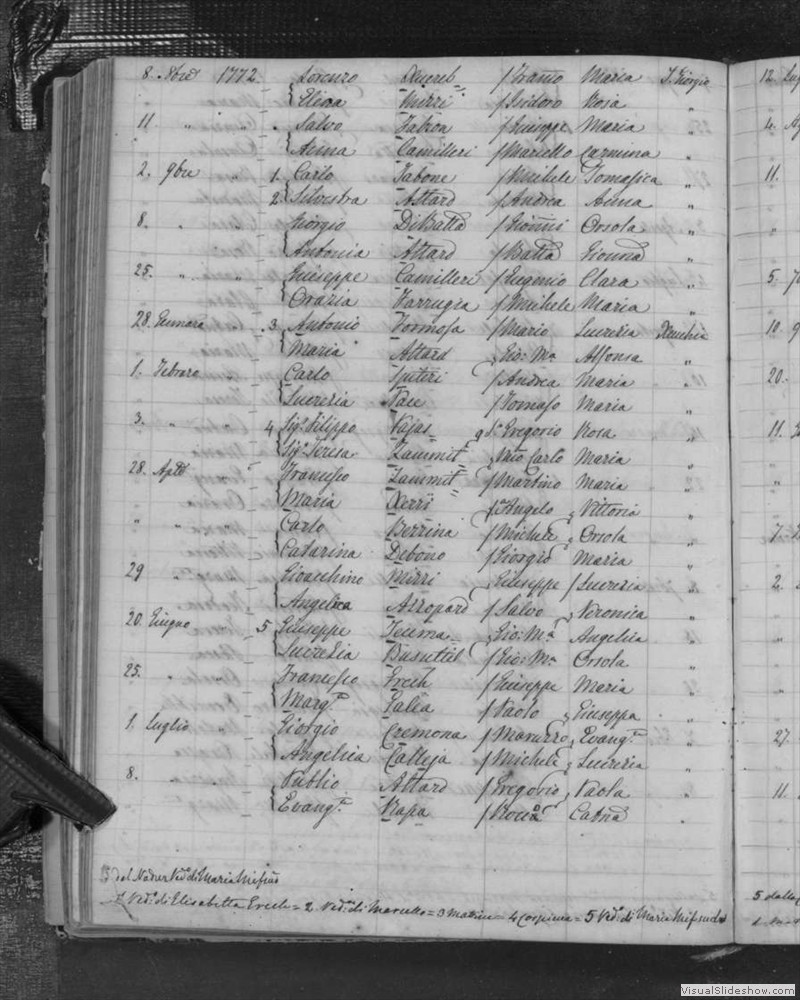 8. 8bre 1772 Lorenzo Xuereb f Franco Maria S. Giorgio
Elena Mirri f Isidoro Rosa "
11 " Salvo Zabron f Giuseppe Maria "
Anna Camilleri f Mariello Carmina "
2. 9bre " 1. Carlo Sabone f Michele Tomasica "
2. Silvestra Attard f Andrea Anna "
8. " Giorgio DiBatta f Gionni Orsola "
Antonia Attard f Batta Gionna "
25. " " Giuseppe Camilleri f Eugenio Clara "
Orazia Farrugia f Michele Maria "
28. Gennaro 3 Antonio Formosa f Mario Lucrezia
Maria Attard Gio: Ma Alfonsa "
1. Febraro Carlo Spiteri f Andrea Maria "
Lucrezia Pace f Tomaso Maria "
3. " 4 Sigr Filippo Pajas Gregorio Rosa "
Siga Teresa Zammit Carlo Maria "
28. Aple Francesco Zammit f Martino Maria "
Maria Xerri Angelo Vittoria "
" " Carlo Berrina f Michele Orsola "
Catarina Debono f Giorgio Maria "
29 " Gioacchino Mirri Giuseppe f Lucrezia "
Angelica Azzopard f Salvo Veronica "
20. Giugno 5 Giuseppe Teuma Gio: Ma Angelica "
Lucrezia Busuttil f Gio: Ma Orsola "
25. " " Francesco Grech f Giuseppe Maria "
Marga Galea f Paolo Giuseppa "
1. Luglio " Giorgio Cremona f Maruzzo Evanga "
Angelica Calleja f Michele Lucrezia "
8. " Publio Attard f Gregorio Paola "
Evanga Rapa f Rocco Catna "
del Nadur Vedo di Maria Mifsud
1 Vedo di Elisabetta Grech = 2 Veda di Marcello = 3 = 4 Cospicua = 5 Vedo di Maria Mifsud
12 Lug
4. Ag
11.
5
10. 9
20.
11.
7
2.
27.
11.
5 dalla
VisualSlideshow.com